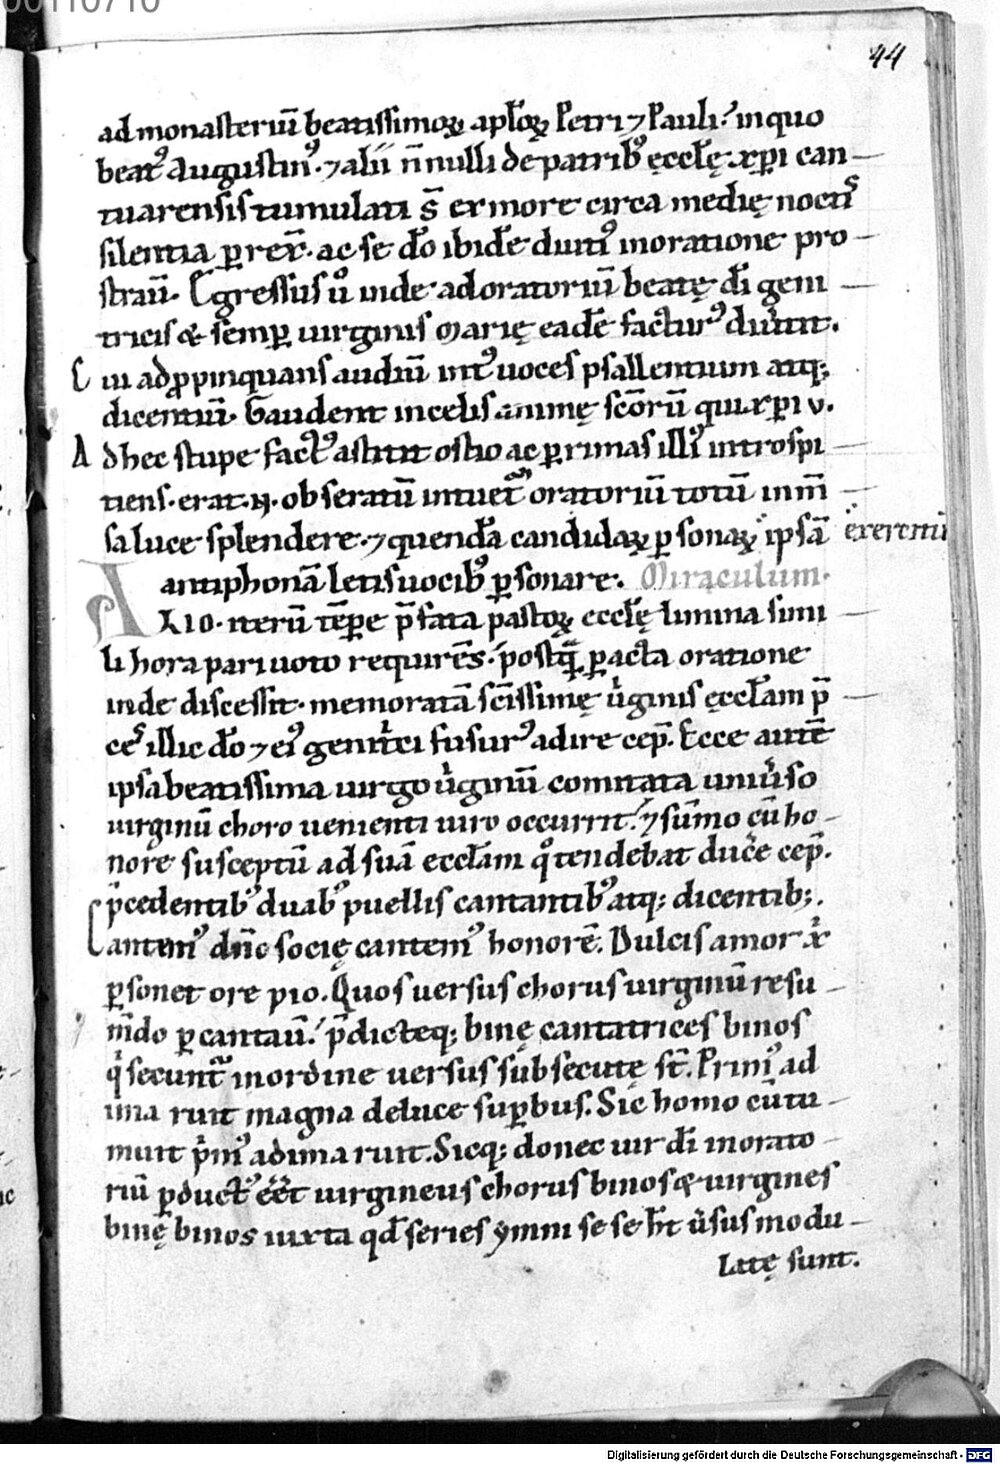 00110710
44
ad monasteriū beatissimoꝝ apl̄oꝝ Petri ⁊ Pauli. in quo
beatꝰ Augustinꝰ. ⁊ alii n̄nulli de patribꝰ ęccl̄ę xp̄i can-
tuarensis tumulati s̄ ex more circa medię noctis
silentia ꝑrexit. ac se dō ibidē diutiꝰ in oratione pro-
strauit. Egressus ů inde ad oratoriū beatę dī geni-
tricis & semꝑ uirginis Marię eadē facturꝰ diůtit.
Cui adꝓpinquans audiuit intꝰ uoces psallentium atq;
dicentiū. Gaudent in celis animę scōrū qui xp̄i v.
Ad hec stupefactꝰ astitit ostio ac ꝑ rimas illiꝰ introspi-
tiens. erat n. obseratū intuetur oratoriū totū inm̄-
sa luce splendere. ⁊ quendā candidaꝝ ꝑsonaꝝ ipsā exercitū
antiphonā letis uocibꝰ ꝑsonare. Miraculum.
ALIO. iterū tēpore p̄fata pastoꝝ ecclę limina simi-
li hora pari uoto requirēs. postquā ꝑacta oratione
inde discessit. memoratā scīssimę uirginis ęccl̄am p̄-
ces illic dō ⁊ eiꝰ genitrici fusurꝰ adire cep̄. Ecce autē
ipsa beatissima uirgo uirginū comitata uniůso
uirginū choro uenienti uiro occurrit. ⁊ sūmo cū ho-
nore susceptū ad suā eccl̄am quo tendebat ducere cep̄.
p̄cedentibꝰ duabꝰ puellis cantantibꝰ atq; dicentib;.
Cantemꝰ dn̄o socię cantemꝰ honorē. Dulcis amor xi
ꝑsonet ore pio. Quos uersus chorus uirginū resu-
mendo ꝑcantauit. p̄dicteq; binę cantatrices binos
qui secuntur in ordine uersus subsecutę st̄. Primꝰ ad
ima ruit magna de luce suꝑbus. Sic homo cū tu-
muit primꝰ ad ima ruit. Sicq; donec uir dī in orato-
riū ꝑductꝰ eēt uirgineus chorus binos & uirgines
binę binos iuxta qd̄ series ymni sese h̄t ůsus modu-
latę sunt.
Digitalisierung gefördert durch die Deutsche Forschungsgemeinschaft - DFG